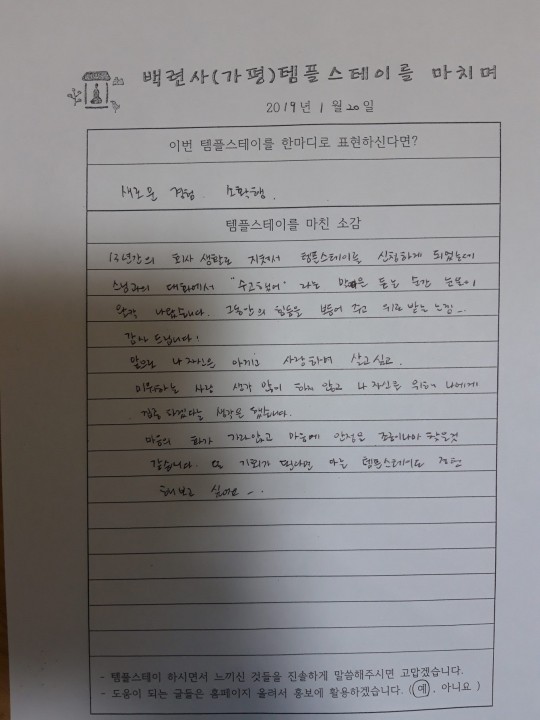 백련사(가평)템플스테이를 마치며
2019년 1월 20일
이번 템플스테이를 한마디로 표현하신다면?
새로운 경험. 소확행.
템플스테이를 마친 소감
13년간의 회사 생활로 지쳐서 템플스테이를 신청하게 되었는데
스님과의 대화에서 "수고했어" 라는 말을 듣는 순간 눈물이
왈칵 나왔습니다. 그동안의 힘듦을 보듬어 주고 위로 받는 느낌...
감사 드립니다!
앞으로 나 자신을 아끼고 사랑하며 살고 싶고.
미워하는 사람 생각 많이 하지 않고 나 자신을 위해 나에게
집중 하겠다는 생각을 했습니다.
마음의 화가 가라앉고 마음에 안정을 조금이나마 찾은것
같습니다. 또 기회가 된다면 다른 템플스테이도 경험
해보고 싶어요 ...
- 템플스테이 하시면서 느끼신 것들을 진솔하게 말씀해주시면 고맙겠습니다.
- 도움이 되는 글들은 홈페이지 올려서 홍보에 활용하겠습니다. (예, 아니요 )